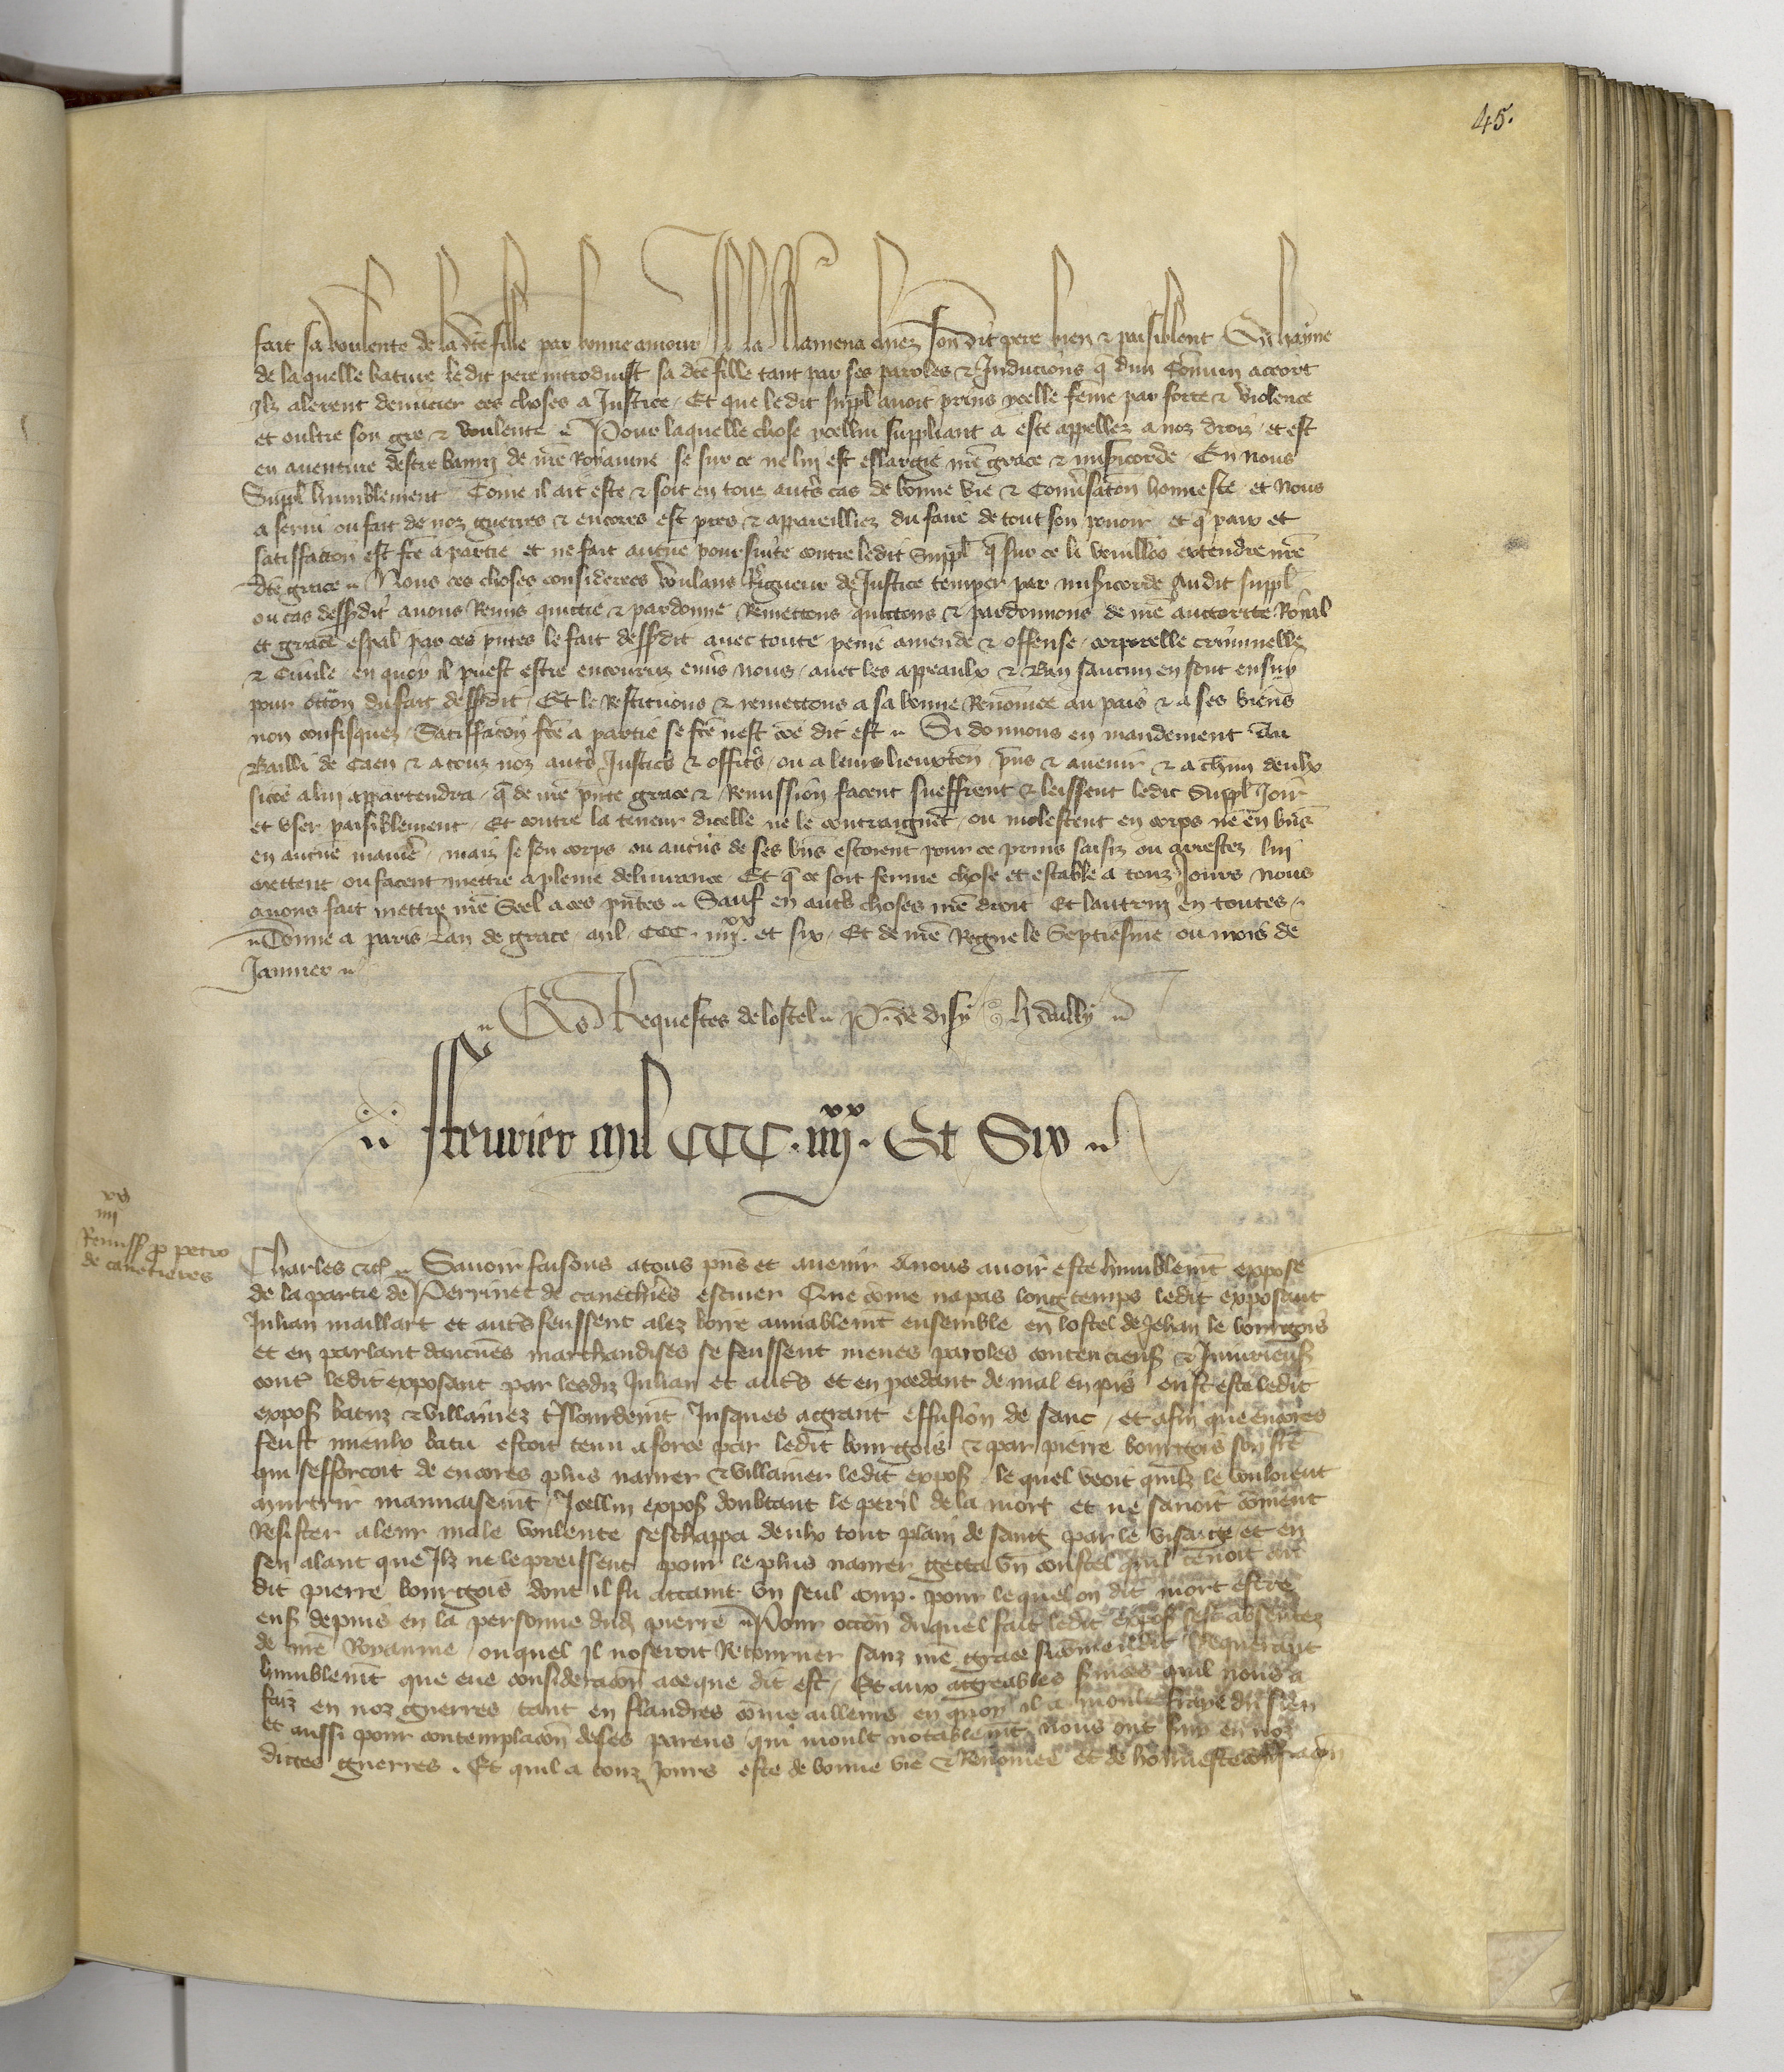 45.
fait sa voulente de la dce fille par bonne amour Et la Ramena chiez son dit pere bien & paisiblent En hayne
de laquelle bature le dit pere introduist sa dce fille tant par ses paroles & Inducions q̃ dun Comun accort
Ilz alerent denuncier ces choses a Justice Et que ledit suppl avoit prins ycelle feme par force & violence
et oultre son gre & voulente Pour laquelle chose ycellui suppliant a este appellez a noz droiz et est
en aventure destre banniz de nre Royaume se sur ce ne lui est eslargie nre grace & misericorde En nous
Suppl humblement Come il ait este & soit en touz autrs cas de bonne vie & Conversation honneste et Nous
a servi ou fait de noz guerres & encores est pres & appareilliez du faire de tout son povoir et q̃ paix et
satiffaccon est fce a partie et ne fait aucune poursuite contre ledit Suppl q̃ sur ce li vueillons extendre nre
dce grace Nous ces choses considerees Voulans Rigueur de Justice temper par misericorde Audit suppl
ou cas dessusdit avons Remis quictie & pardonne Remettons quictons & pardonnons de nre auctorite Royal
et grace espal par ces pntes le fait dessusdit avec toute peine amende & offense corporelle criminelle
& Civile en quoy il puest estre encouruz envs nous avec les appeaulx & Ban saucun en sont ensuy
pour occon du fait dessusdit Et le Restituons & remettons a sa bonne Renomee au pais & a ses biens
non confisquez Satiffacon fce a partie se fce nest coe dit est Si donnons en mandement Au
Bailli de Caen & a touz noz autrs Justics & officrs ou a leurs lieuxten pns & avenir & a chun deulx
sicoe a lui appartendra q̃ de nre pnte grace & Remission facent sueffrent & leissent ledit Suppl Joir
et user paisiblement Et contre la teneur dicelle ne le contraignet ou molestent en corps ne en bns
en aucune manie mais se son corps ou aucuns de ses bns estoient pour ce prins saisiz ou arrestez lui
mettent ou facent mettre a pleine delivrance Et q̃ ce soit ferme chose et estable a touz Jours Nous
avons fait mettre nre Seel a ces pntes Sauf en autrs choses nre droit Et lautruy en toutes
Donne a paris Lan de grace mil CCC iiijxx et six Et de nre Regne le Septiesme ou mois de
Janvier
Es Requestes de lostel P. de disy h dailly
ffevrier mil CCC. iiijxx. Et Six
Remiss p petro
de canetieres
Charles &c Savoir faisons a tous pns et avenir A nous avoir este humblemt expose
de la partie de Perrinet de canechiers escuier Que come na pas long temps ledit exposant
Julian maillart et autrs feussent alez boire amiablemt ensemble en lostel de Jehan le bourgois
et en parlant daucunes marchandises se feussent meues paroles contencieuses & Iniurieuses
contr ledit exposant par lesdiz Julian et autrs et en pcedant de mal en pis eust este ledit
expos batuz & villainez tslourdemt Jusques a grant effusion de sanc et afin que encores
feust mieulx batu estoit tenu a force par ledit bourgois & par pierre bourgois son fre
qui sefforcoit de encores plus navrer & villainer ledit expos le quel veoit quilz le vouloient
murtrir mauvaisemt Icellui expos doubtant le peril de la mort et ne savoit coment
Resister a leur male voulente seschappa deulx tout plain de sang par le visaige et en
sen alant que Ilz ne le preissent pour le plus navrer getta un coustel quil tenoit au
dit pierre bourgois dont il fu attaint un seul coup pour lequel on dit mort estre
ensuy depuis en la personne dud pierre Pour occon duquel fait ledit expos sest absentez
de nre Royaume ouquel Il noseroit Retourner sanz nre grace sicomme il dit Requerant
humblemt que eue consideracon a ce que dit est Et aux agreables svices quil nous a
faiz en noz guerres tant en flandres come ailleurs en quoy il a moult fraye du sien
et aussi pour contemplacon de ses parens qui moult notablemt nous ont svi en noz
dictes guerres Et quil a touz Jours este de bonne vie & Renomee et de honneste conversacon